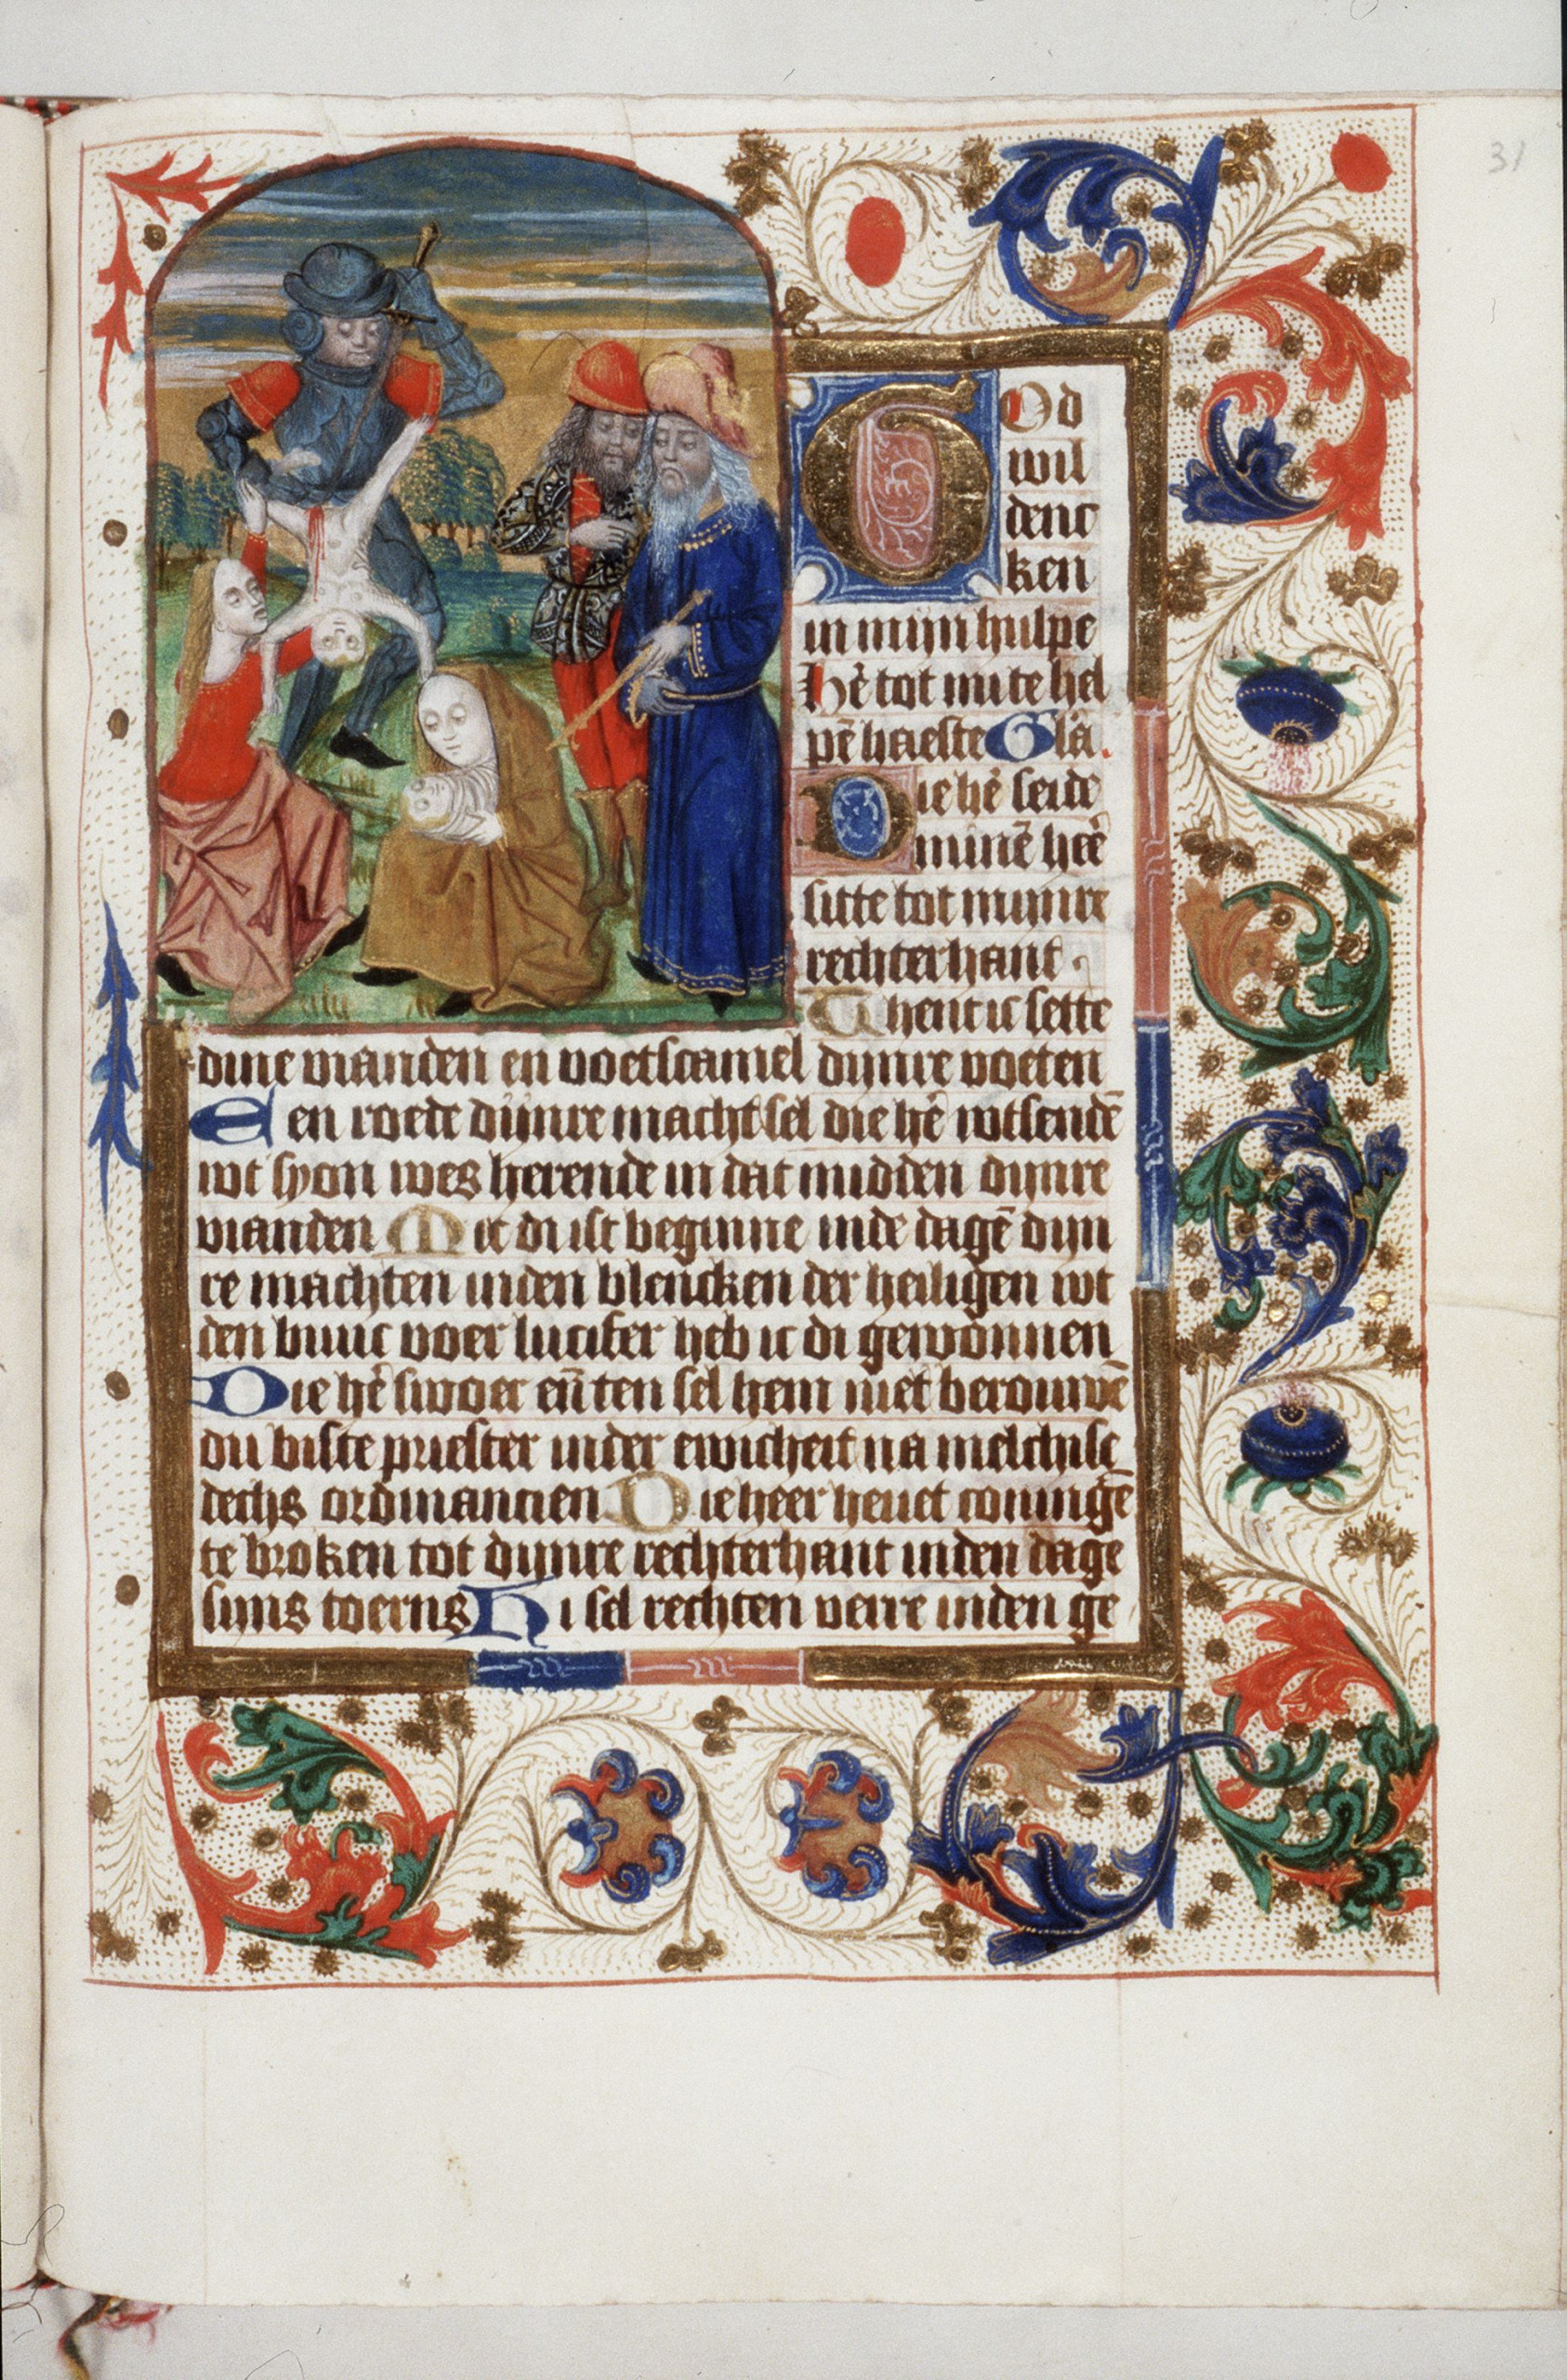 31
God
wil
denc
ken
in mijn hulpe
hē tot mi te hel
pē haeste Gla.
Die hē seide
minē hēe
sitte tot mijnre
rechterhant.
Thent ic sette
dine vianden en voetscamel dijnre voeten
Een roede dijnre macht sel die hē wtsendē
wt syon wes herende in dat midden dijnre
vianden Mit di ist beginne inde dagē dijn
re machten inden blencken der heiligen wt
den buuc voer lucifer heb ic di gewonnen
Die hē swoer en̄ ten sel hem niet berouwē
du biste priester inder ewicheit na melchise
dechs ordinancien Die heer heuet coningē
te broken tot dijnre rechterhant inden dage
sijns toerns Hi sel rechten verre inden ge